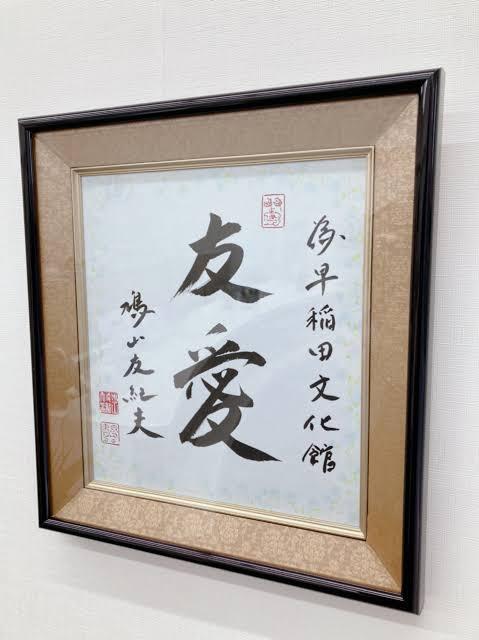 為早稲田文化館
友愛
鳩山友紀夫